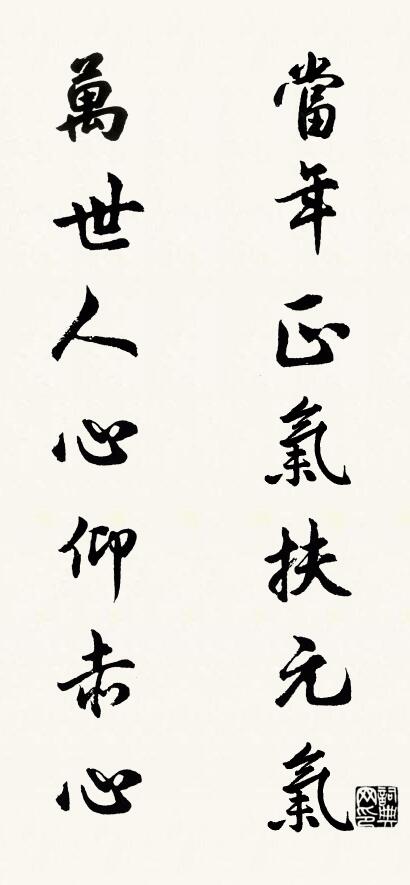 當年正氣扶元氣
萬世人心仰赤心
詞典网印